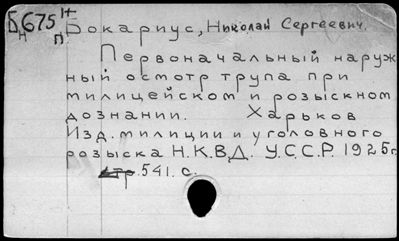 Б675 14
Н П
Бокариус, Николай Сергеевич.
Первоначальный наруж
ный осмотр трупа при
милицейском и розыскном
дознании. Харьков
Изд. милиции и уголовного
розыска Н.К.В.Д. У.С.С.Р. 1925г.
стр. 541. с.